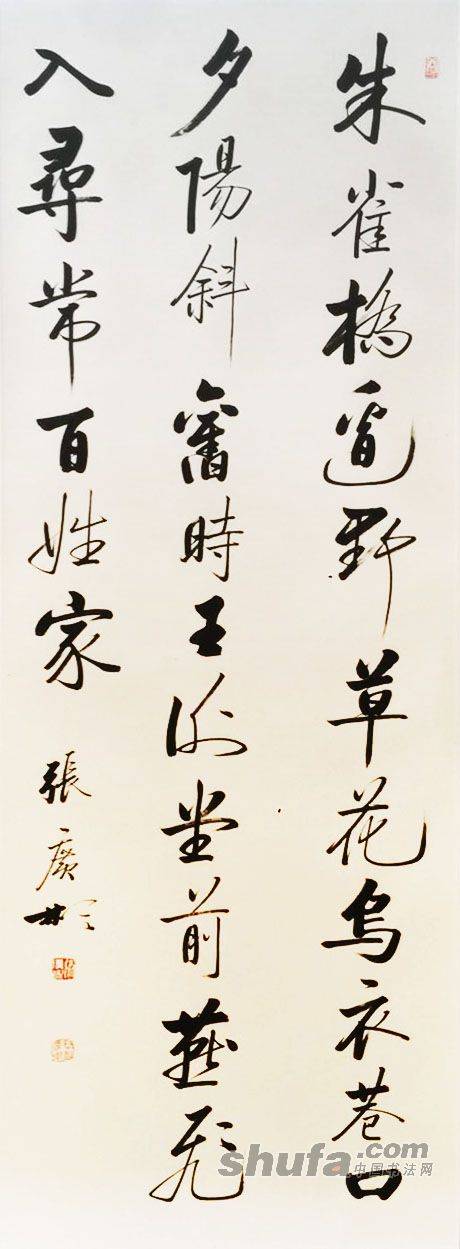 朱雀橋邊野草花烏衣巷口
夕陽斜舊時王謝堂前燕飛
入尋常百姓家
張廣彬
shufa.com
中国书法网